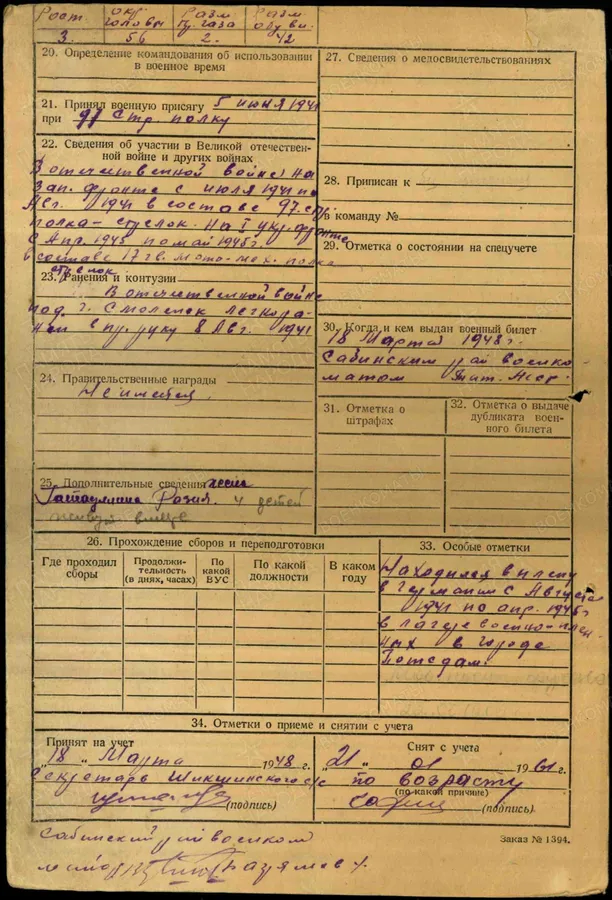 Рост окр. головы Разм. пр. газа Разм. обуви
3. 56 2. 42
20. Определение командования об использовании
в военное время
21. Принял военную присягу 5 июня 1941
при 97 стр. полку
22. Сведения об участии в Великой отечествен-
ной войне и других войнах
В отечественной войне на
зап. фронте с июля 1941 по
Авг. 1941 в составе 97 стр.
полка - стрелок. На I укр. фронте
с Апр. 1945 по май 1945 г.
в составе 17 гв. мото-мех. полка
стрелок
23. Ранения и контузии
В отечественной войне
под г. Смоленск легко ра-
нен в пр. руку 8 Авг. 1941
24. Правительственные награды
Не имеется
25. Дополнительные сведения жена
Гатауллина Разия. 4 детей
27. Сведения о медосвидетельствованиях
28. Приписан к
в команду №
29. Отметка о состоянии на спецучете
30. Когда и кем выдан военный билет
18 Марта 1948 г.
Сабинским рай военко-
матом Тат. Асср.
31. Отметка о
штрафах
32. Отметка о выдаче
дубликата воен-
ного билета
26. Прохождение сборов и переподготовки
Где проходил
сборы
Продолжи-
тельность
(в днях, часах)
По
какой
ВУС
По какой
должности
В каком
году
33. Особые отметки
Находился в плену
в германии с Августа
1941 по апр. 1945 г
в лагере военно-плен-
ных в городе
Потсдам.
34. Отметки о приеме и снятии с учета
Принят на учет
"18" Марта 1948 г.
Секретарь Шикшинского с/с
(подпись)
Снят с учета
"21" 01 1961 г.
по возрасту
(по какой причине)
(подпись)
Сабинский райвоенком
майор
Заказ № 1394.